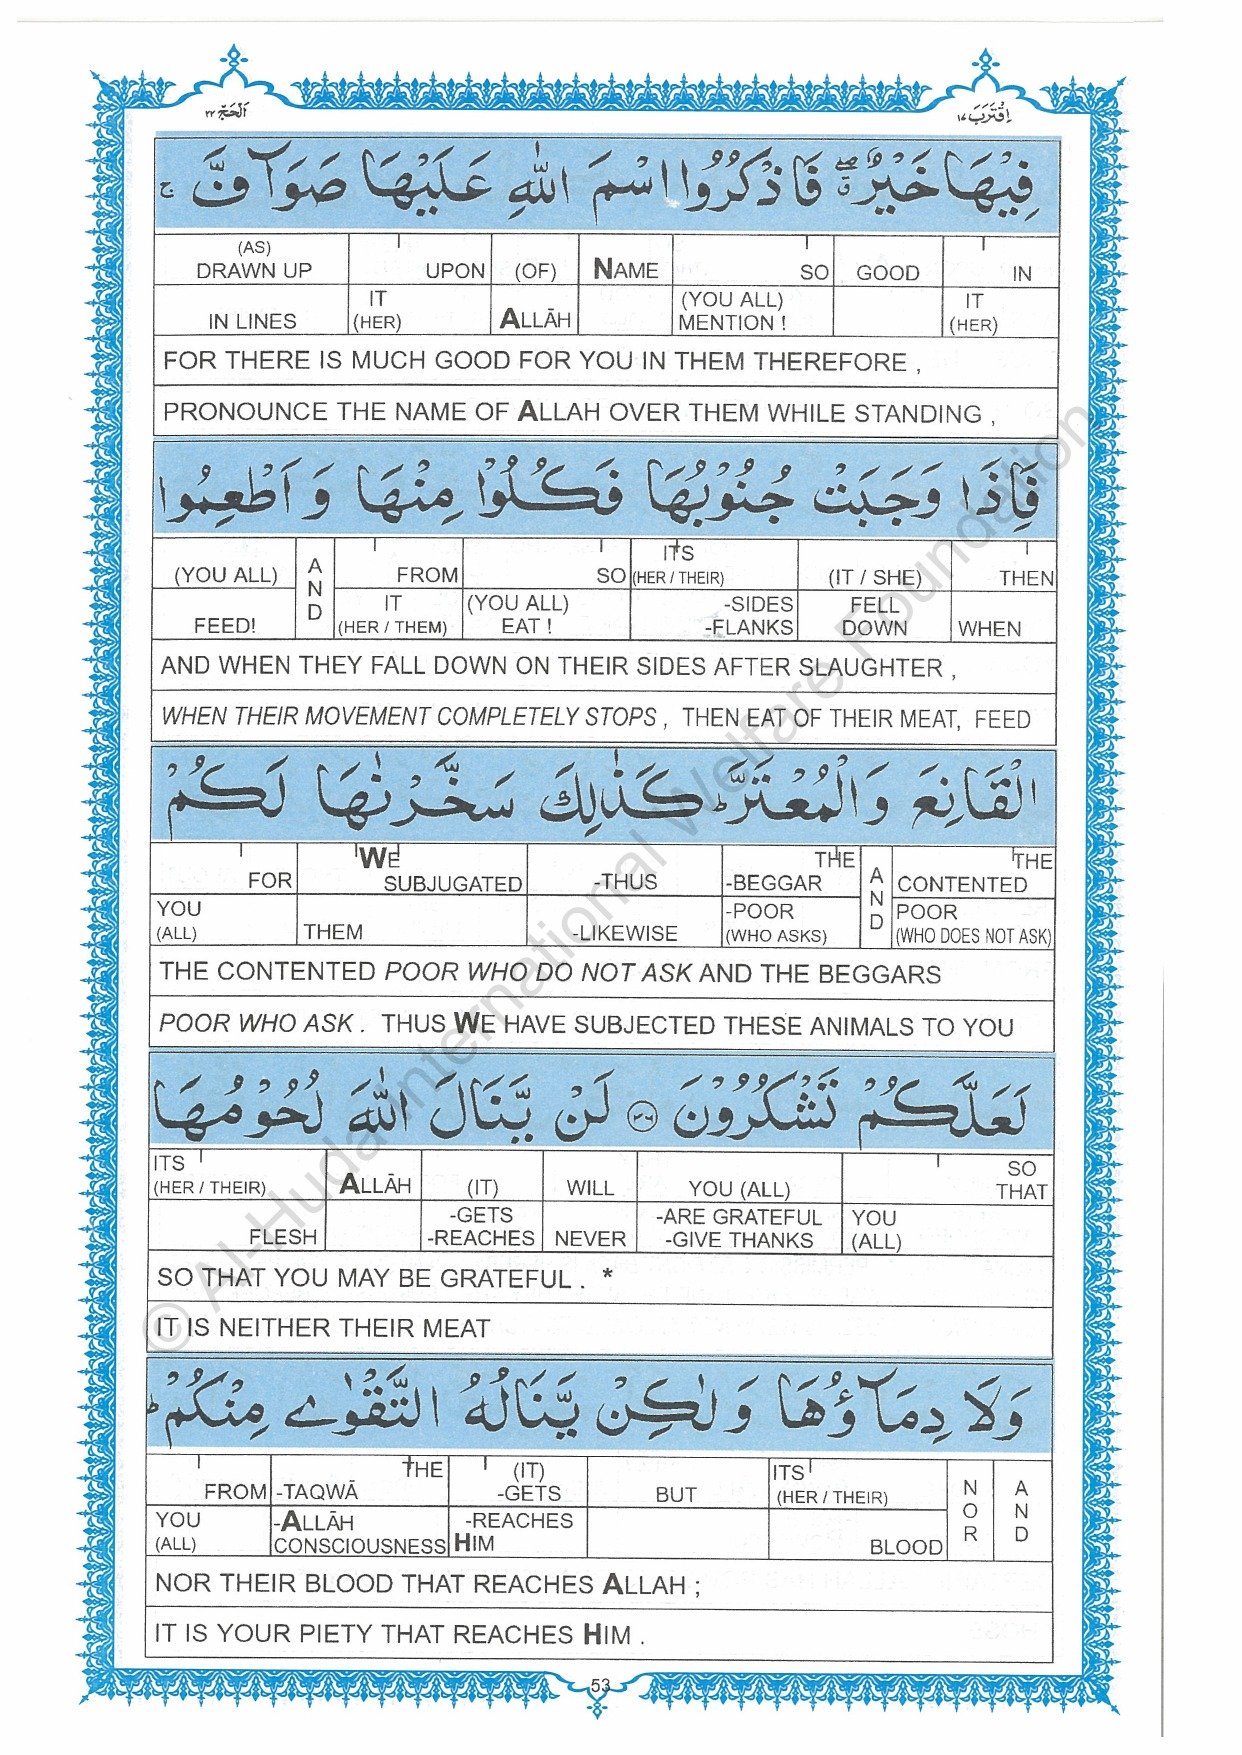 اَلْحَجّ ٢٢
اِقْتَرَبَ ١٧
فِيْهَا خَيْرٌ ۖ ق فَاذْكُرُوا اسْمَ اللّٰهِ عَلَيْهَا صَوَآفَّ ج
(AS) DRAWN UP | UPON | (OF) | NAME | SO | GOOD | IN
IN LINES | IT (HER) | ALLĀH | (YOU ALL) MENTION ! | IT (HER)
FOR THERE IS MUCH GOOD FOR YOU IN THEM THEREFORE ,
PRONOUNCE THE NAME OF ALLAH OVER THEM WHILE STANDING ,
فَاِذَا وَجَبَتْ جُنُوْبُهَا فَكُلُوْا مِنْهَا وَ اَطْعِمُوا
(YOU ALL) | AND | FROM | SO | ITS (HER / THEIR) | (IT / SHE) | THEN
FEED! | IT (HER / THEM) | (YOU ALL) EAT ! | -SIDES -FLANKS | FELL DOWN | WHEN
AND WHEN THEY FALL DOWN ON THEIR SIDES AFTER SLAUGHTER ,
WHEN THEIR MOVEMENT COMPLETELY STOPS , THEN EAT OF THEIR MEAT, FEED
الْقَانِعَ وَالْمُعْتَرَّ ط كَذٰلِكَ سَخَّرْنٰهَا لَكُمْ
FOR | WE SUBJUGATED | -THUS | THE -BEGGAR | AND | THE CONTENTED
YOU (ALL) | THEM | -LIKEWISE | -POOR (WHO ASKS) | POOR (WHO DOES NOT ASK)
THE CONTENTED POOR WHO DO NOT ASK AND THE BEGGARS
POOR WHO ASK . THUS WE HAVE SUBJECTED THESE ANIMALS TO YOU
لَعَلَّكُمْ تَشْكُرُوْنَ ﴿٣٦﴾ لَنْ يَّنَالَ اللّٰهَ لُحُوْمُهَا
ITS (HER / THEIR) | ALLĀH | (IT) | WILL | YOU (ALL) | SO THAT
FLESH | -GETS -REACHES | NEVER | -ARE GRATEFUL -GIVE THANKS | YOU (ALL)
SO THAT YOU MAY BE GRATEFUL . *
IT IS NEITHER THEIR MEAT
وَلَا دِمَآؤُهَا وَلٰكِنْ يَّنَالُهُ التَّقْوٰى مِنْكُمْ ط
FROM | THE -TAQWĀ | (IT) -GETS | BUT | ITS (HER / THEIR) | NOR | AND
YOU (ALL) | -ALLĀH CONSCIOUSNESS | -REACHES HIM | BLOOD
NOR THEIR BLOOD THAT REACHES ALLAH ;
IT IS YOUR PIETY THAT REACHES HIM .
53
© Al-Huda International Welfare Foundation